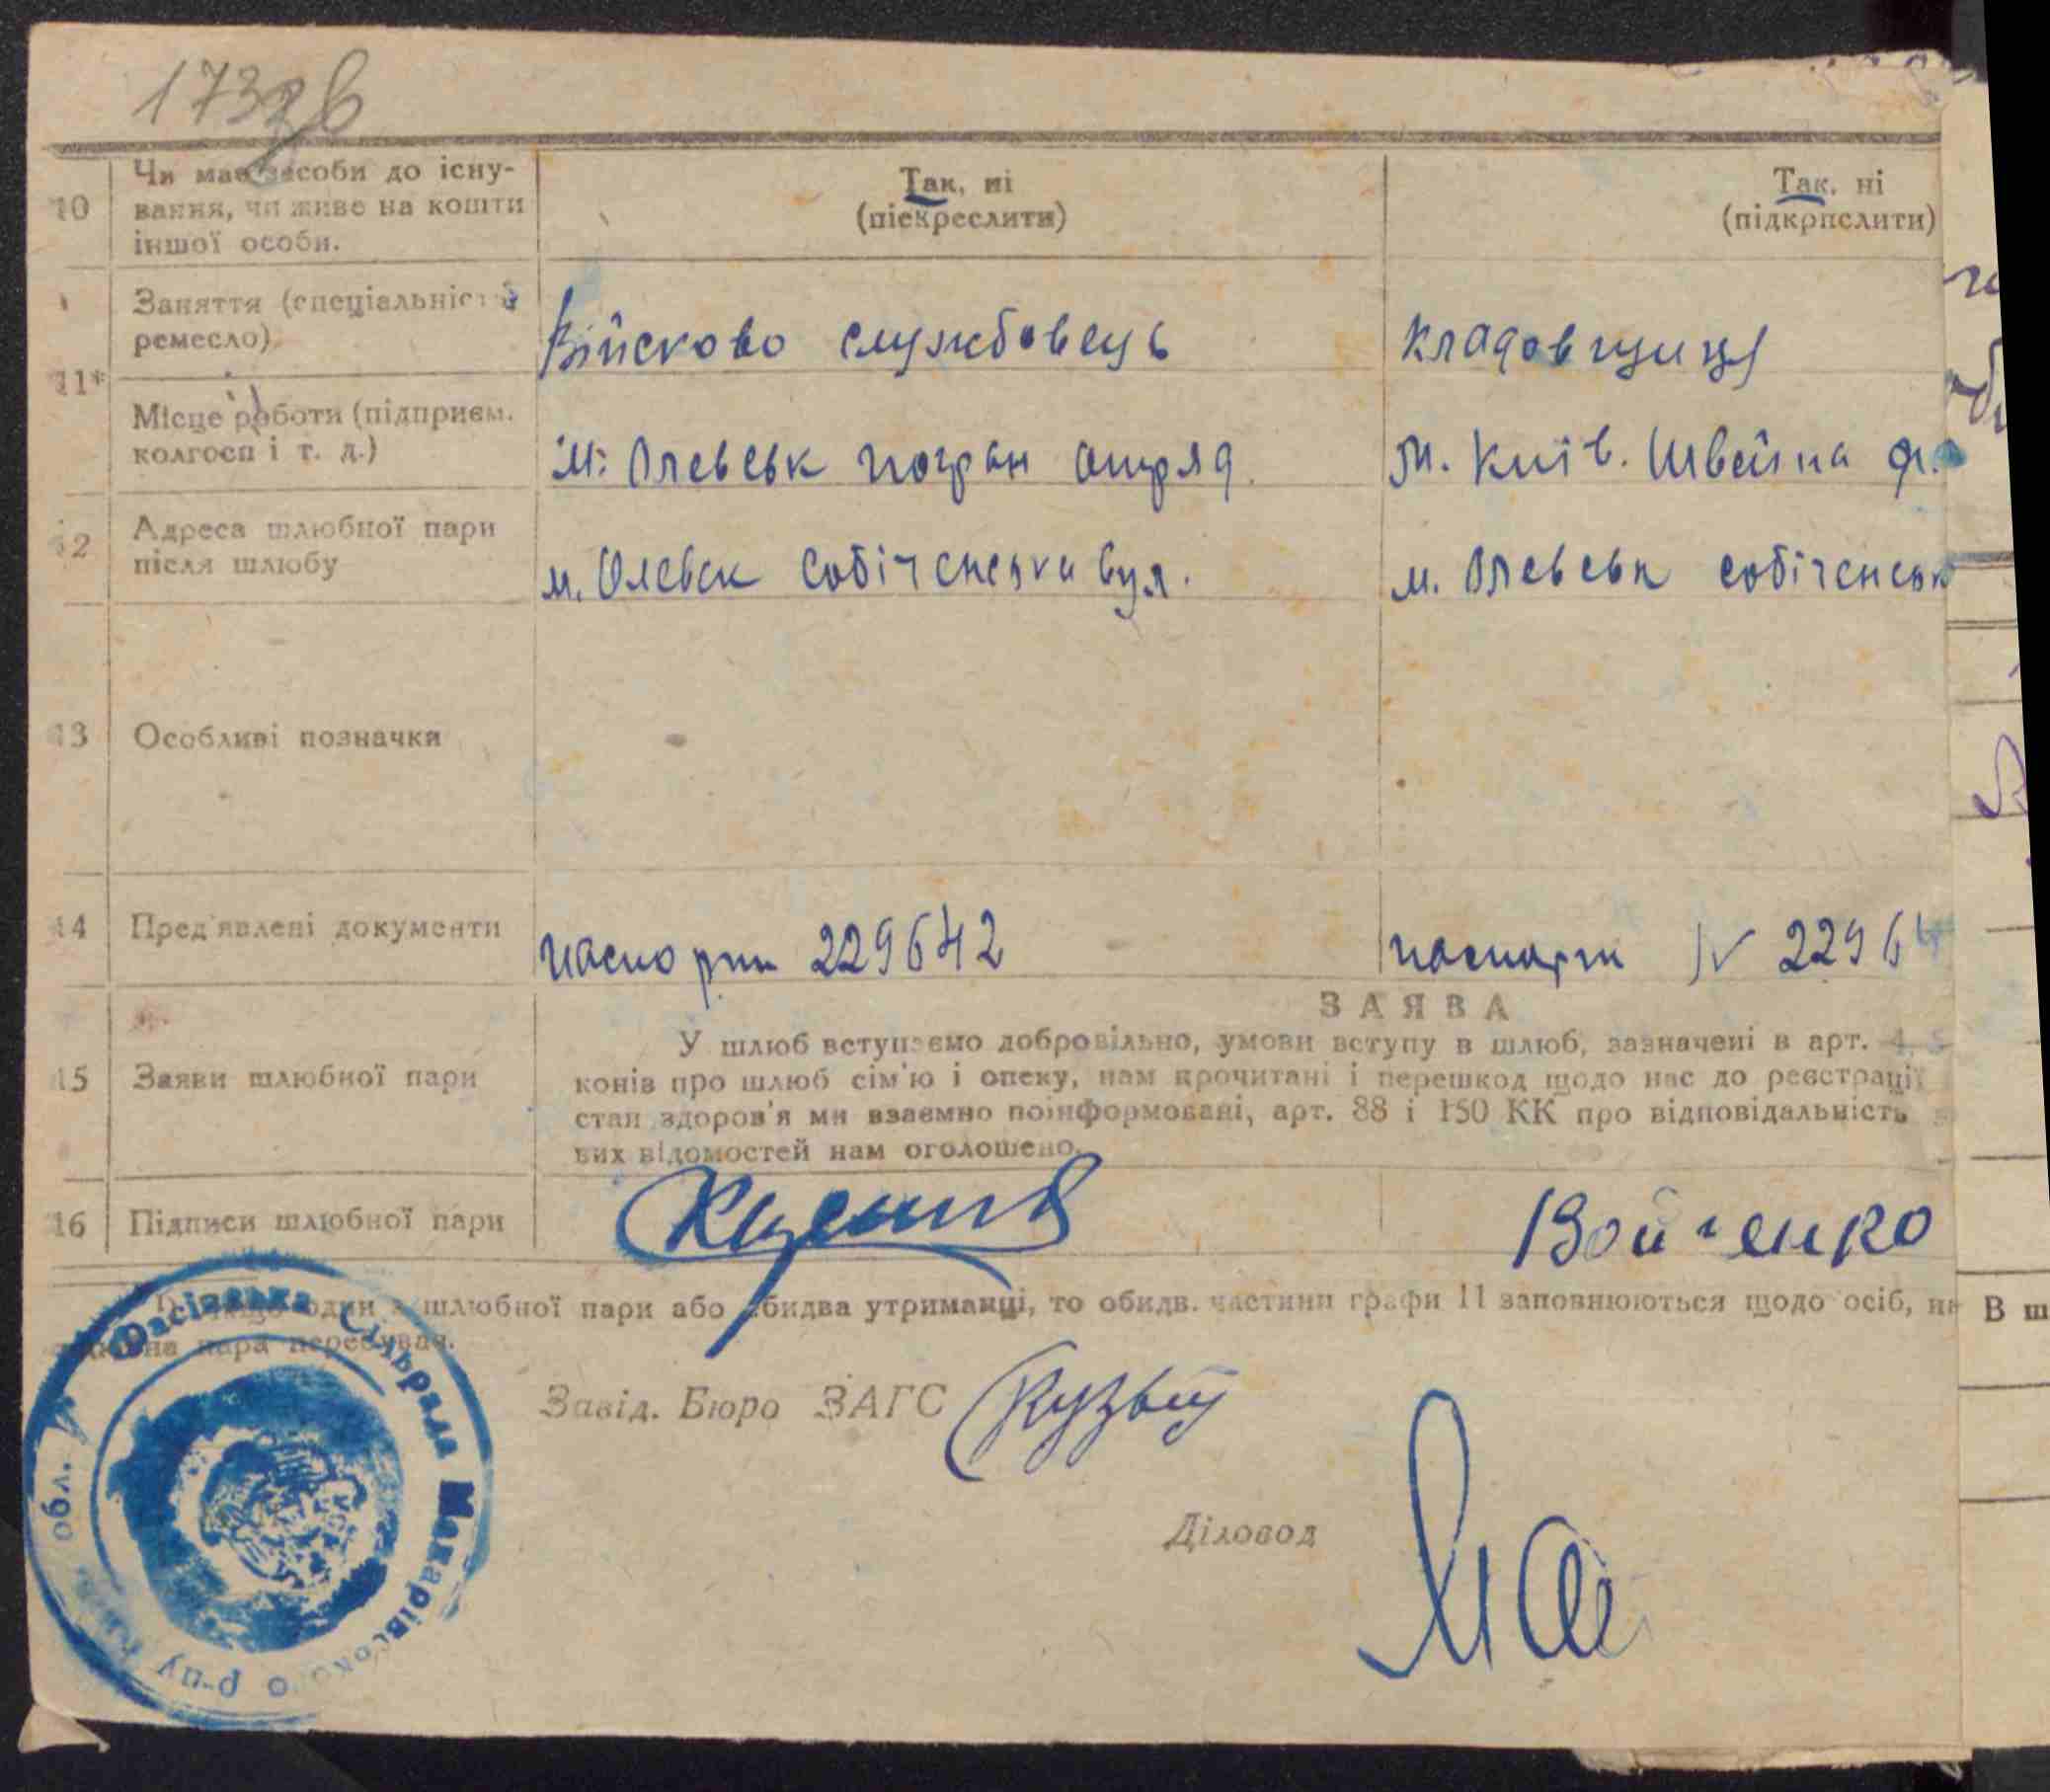 10
Чи має засоби до існу-
вання, чи живе на кошти
іншої особи.
Так, ні
(підкреслити)
Так, ні
(підкрпслити)
11*
Заняття (спеціальність
ремесло)
Військово службовець
Кладовщиця
Місце роботи (підприєм.
колгосп і т. д.)
м: Олевськ погран отряд.
м. Київ. Швейна ф.
12
Адреса шлюбної пари
після шлюбу
м. Олевск вул.
м. Олевськ
13
Особливі позначки
14
Пред'явлені документи
паспорт 229642
паспорт N 22964
15
Заяви шлюбної пари
ЗАЯВА
У шлюб вступаємо добровільно, умови вступу в шлюб, зазначені в арт. 4, 5
конів про шлюб сім'ю і опеку, нам прочитані і перешкод щодо нас до реєстрації
стан здоров'я ми взаємно поінформовані, арт. 88 і 150 КК про відповідальність
вих відомостей нам оголошено.
16
Підписи шлюбної пари
Войченко
один з шлюбної пари або обидва утриманці, то обидв. частини графи 11 заповнюються щодо осіб, на
пара перебував.
В ш
Завід. Бюро ЗАГС
Діловод
Сільрада Макарівського р-ну обл.